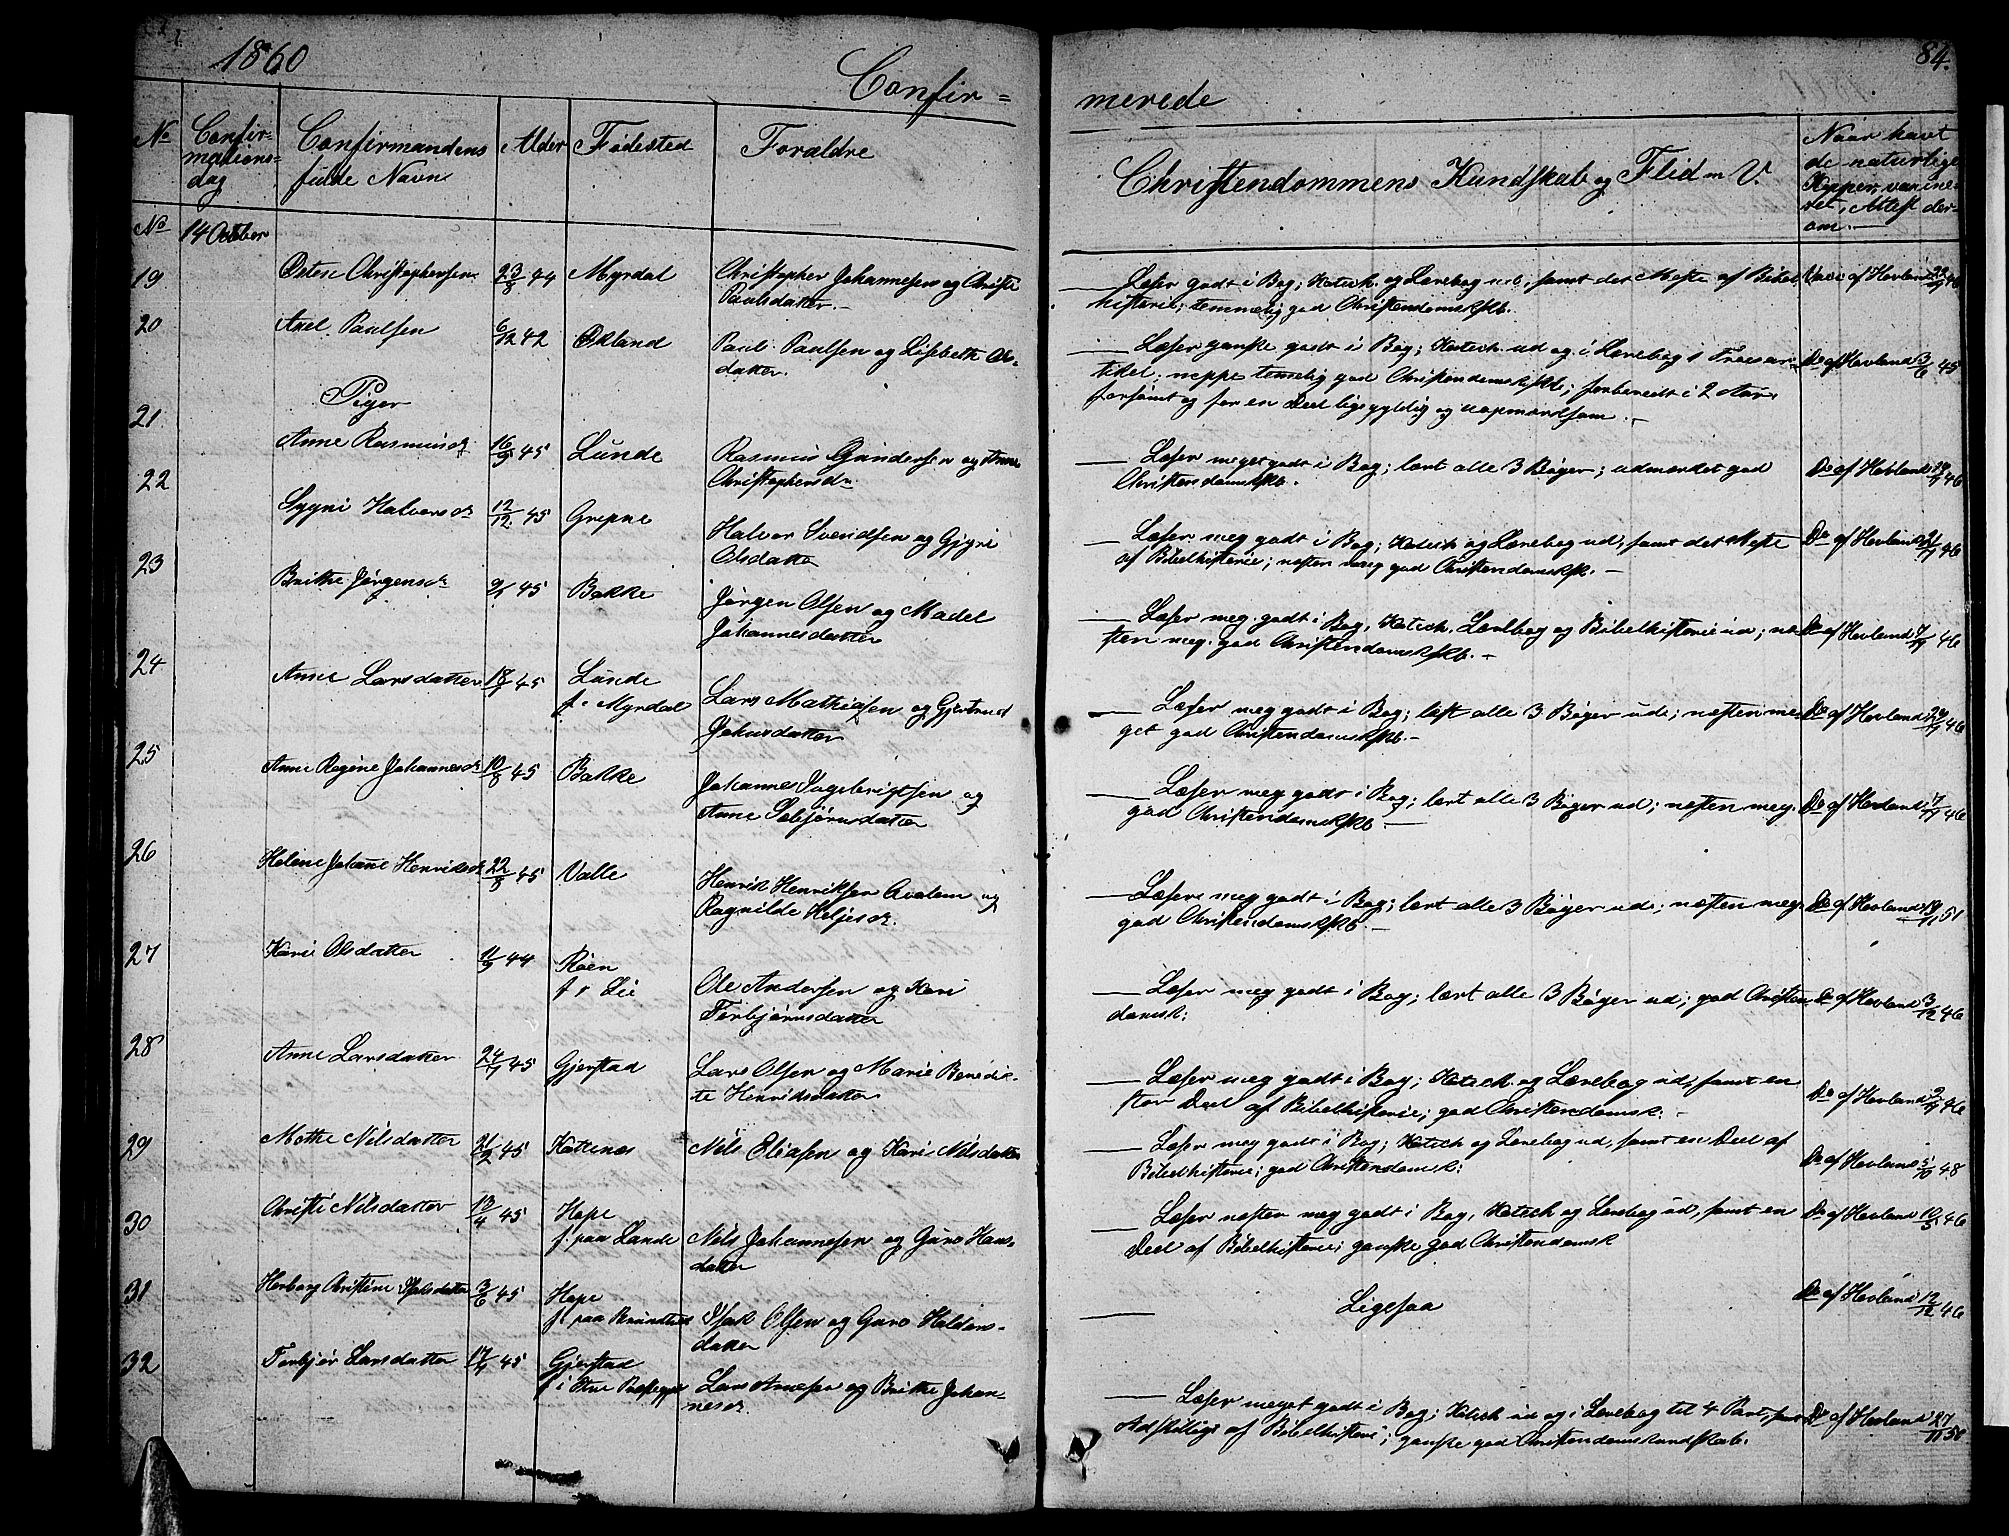 1860
84.
Confir=
merede
No
Confir-
mations=
dag
Confirmandens
fulde Navn
Alder
Fødested
Forældre
Christendommens Kundskab og Flid m V.
Naar havt
de naturlige
Kopper, vaccine-
ret, Attest der-
om.
No
14 October
19
Christophersen
23/8 44
Myrdal
Christopher Johannesen og Christi
Paulsdatter.
Læser godt i Bog; Katech. og Lærebog ud, samt det Meste af Bibel-
historie; temmelig god Christendomskskb.
Vacc af Hovland 46
20
Axel Paulsen
6/12 42
Økland
Paul Paulsen og Lisbeth Ols-
datter.
Læser ganske godt i Bog; Katech. ud og i Lærebog 1 Troesar-
tikel; neppe temelig god Christendomskskb; forberedt i 2 Aar,
forsømt og for en Deel ligegyldig og uopmærksom.
Do af Hovland 3/6 45
Piger
21
Anne Rasmusdr
16/5 45
Lunde
Rasmus Gundersen og Anne
Christophersdr.
Læser meget godt i Bog; lært alle 3 Bøger; udmærket god
Christendomskskb.
Do af Hovland 46
22
Sygni Halvorsdr
12/12 45
Grepne
Halvor Svendsen og Gjyri
Olsdatter
Læser meg godt i Bog; Katech og Lærebog ud, samt det Meste
af Bibelhistorie; næsten meg god Christendomskskb.
Do af Hovland 46
23
Brithe Jørgensdr
45
Bakke
Jørgen Olsen og Madel
Johannesdatter
Læser meg. godt i Bog, Katech. Lærebog og Bibelhistorie ud; næ-
sten meg. god Christendomskskb.
Do af Hovland 46
24
Anne Larsdatter
18/1 45
Lunde
f. Myrdal
Lars Mathiasen og Gjertrud
Johnsdatter
Læser meg godt i Bog; læst alle 3 Bøger ud; næsten me-
get god Christendomskskb.
Do af Hovland 46
25
Anne Regine Johannesdr
10/8 45
Bakke
Johannes Ingebrigtsen og
Anne Sebjørnsdatter
Læser meg godt i Bog; lært alle 3 Bøger ud; næsten meg.
god Christendomskskb.
Do af Hovland 46
26
Helene Johanne Henriksdr
22/8 45
Valle
Henrik Henriksen Qvalem og
Ragnilde Heljesdr.
Læser meg godt i Bog; lært alle 3 Bøger ud; næsten meg.
god Christendomskskb.
Do af Hovland 51
27
Kari Olsdatter
11/9 44
Røen
f. Lie
Ole Andersen og Kari
Torbjørnsdatter
Læser meg godt i Bog; lært alle 3 Bøger ud; god Christen-
domsk:
Do af Hovland 3/12 46
28
Anne Larsdatter
24/7 45
Gjerstad
Lars Olsen og Marie Benedic-
te Henriksdatter
Læser meg godt i Bog; Katech. og Lærebog ud, samt en
stor Deel af Bibelhistorie; god Christendomsk.
Do af Hovland 46
29
Mette Nilsdatter
21/2 45
Kattenæs
Nils Eliasen og Kari Nilsdatter
Læser meg godt i Bog; Katech og Lærebog ud, samt en Deel af
Bibelhistorie; god Christendomsk:
Do af Hovland 5/10 48
30
Christi Nilsdatter
13/4 45
Hope
f. paa Sande
Nils Johannesen og Guro Hans-
datter
Læser næsten meg godt i Bog, Katech og Lærebog ud, samt en
Deel af Bibelhistorie; ganske god Christendomsk
Do af Hovland 46
31
Herborg Christine Isaksdatter
3/6 45
Hope
f. paa
Isak Olsen og Guro Haldors-
datter
Ligesaa
Do af Hovland 12/12 46
32
Torbjør Larsdatter
17/4 45
Gjerstad
Lars Arnesen og Brithe Johan-
nesdr.
Læser meget godt i Bog; Katech ud og i Lærebog til 4 Part, samt
Adskilligt af Bibelhistorie; ganske god Christendomskundskab.
Do af Hovland 27/11 50